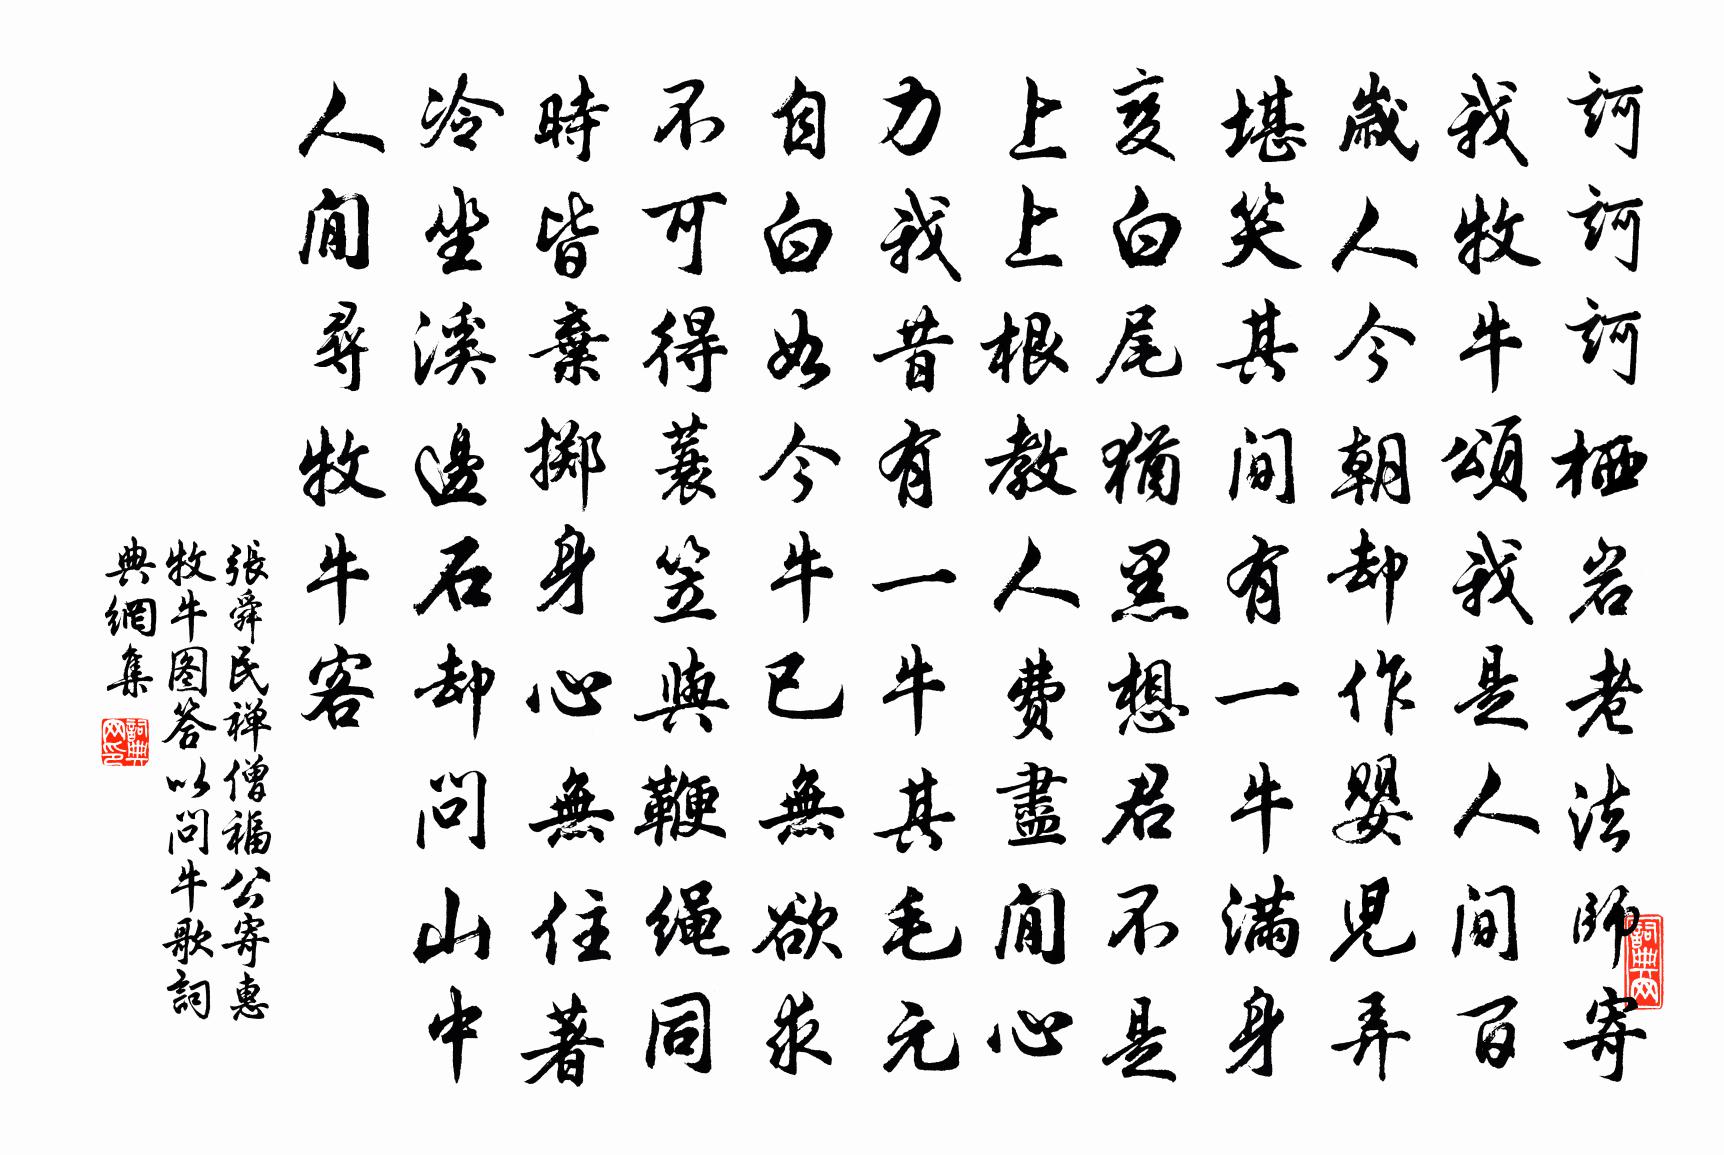 訶訶訶栖岩老法師寄
我牧牛頌我是人间百
歲人今朝却作嬰児弄
堪笑其间有一牛满身
变白尾猶黑想君不是
上上根教人費盡閒心
力我昔有一牛其毛元
自白如今牛已無欲求
不可得蓑笠與鞭绳同
時皆棄掷身心無住著
冷坐溪邊石却问山中
人閒尋牧牛客
張舜民禅僧福公寄惠
牧牛图答以问牛歌詞
典網集
詞典网
詞典网印